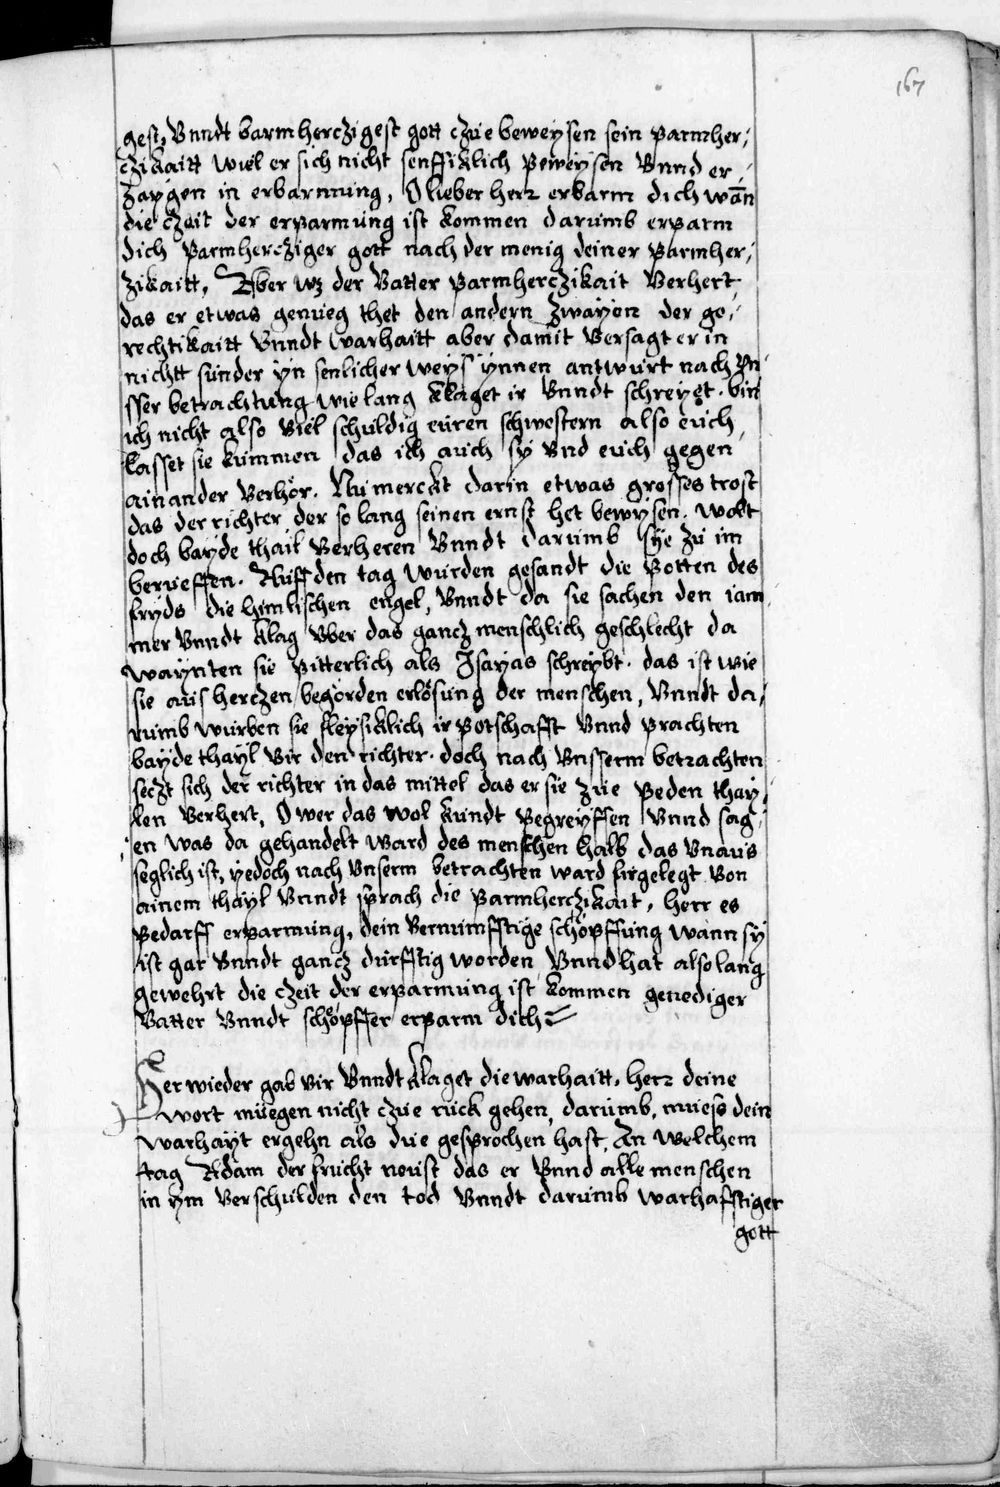 167
gest, Vnndt barmherczigest gott czúe beweysen sein parmher,/
czikaitt wiel er sich nicht senfftiklich peweÿsen Vnnd er,/
zaÿgen in erbarmung, O lieber herr erbarm dich wañ
die czeit der erparmúng ist kommen darúmb erparm
dich parmhercziger gott nach der menig deiner parmher,/
zikaitt, Aber wz der Vatter parmherczikait Verhert
das er etwas genúeg thet den andern zwaÿen der ge,/
rechtikaitt Vnndt warhaitt aber damit Versagt er in
nichtt súnder ÿn senlicher weÿs ÿnnen antwúrt nach Vn
sser betrachtúng wie lang klaget ir Vnndt schreÿet. bin
ich nicht also Viel schúldig eúren schwestern also eúch
lasset sie kúmmen das ich aúch sÿ Vnd eúch gegen
ainander Verhör. Nú merckt darin etwas grosses trost
das der richter der so lang seinen ernst het bewÿsen. wolt
doch baÿde thail Verheren Vnndt darúmb sÿe zú im
berúeffen. Aúff den tag wúrden gesandt die Potten des
fryds die himlischen engel, Vnndt da sie sachen den iam
mer Vnndt klag Vber das gancz menschlich geschlecht da
waÿnten sie pitterlich als Jsaÿas schreÿbt. das ist wie
sie aús herczen begörden erlösúng der menschen, Vnndt da,/
rúmb wúrben sie fleÿsiklich ir potschafft Vnnd prachten
baÿde thaÿl Vir den richter. doch nach Vnsserm betrachten
seczt sich der richter in das mittel das er sie zúe peden thaÿ,/
len Verhert, O wer das wol kúndt pegreÿffen Vnnd sag,/
en was da gehandelt ward des menschen halb das Vnaús
seglich ist, ÿedoch nach Vnserm betrachten ward firgelegt Von
ainem thaÿl Vnndt sprach die parmherczikait, herr es
pedarff erparmúng, dein Vernúmfftige schöpffúng wann sÿ
ist gar Vnndt gancz dúrfftig worden Vnnd hat also lang
gewehrt die czeit der erparmúng ist kommen genediger
Vatter Vnndt schöpffer erparm dich
Her wieder gab vir Vnndt klaget die warhaitt, herr deine
wort múegen nicht czúe rúck gehen, darúmb, múejs dein
warhaÿt ergehn als dúe gesprochen hast, An welchem
tag Adam der frúcht neúst das er Vnnd alle menschen
in ÿm Verschúlden den tod Vnndt darúmb warhafftiger
gott